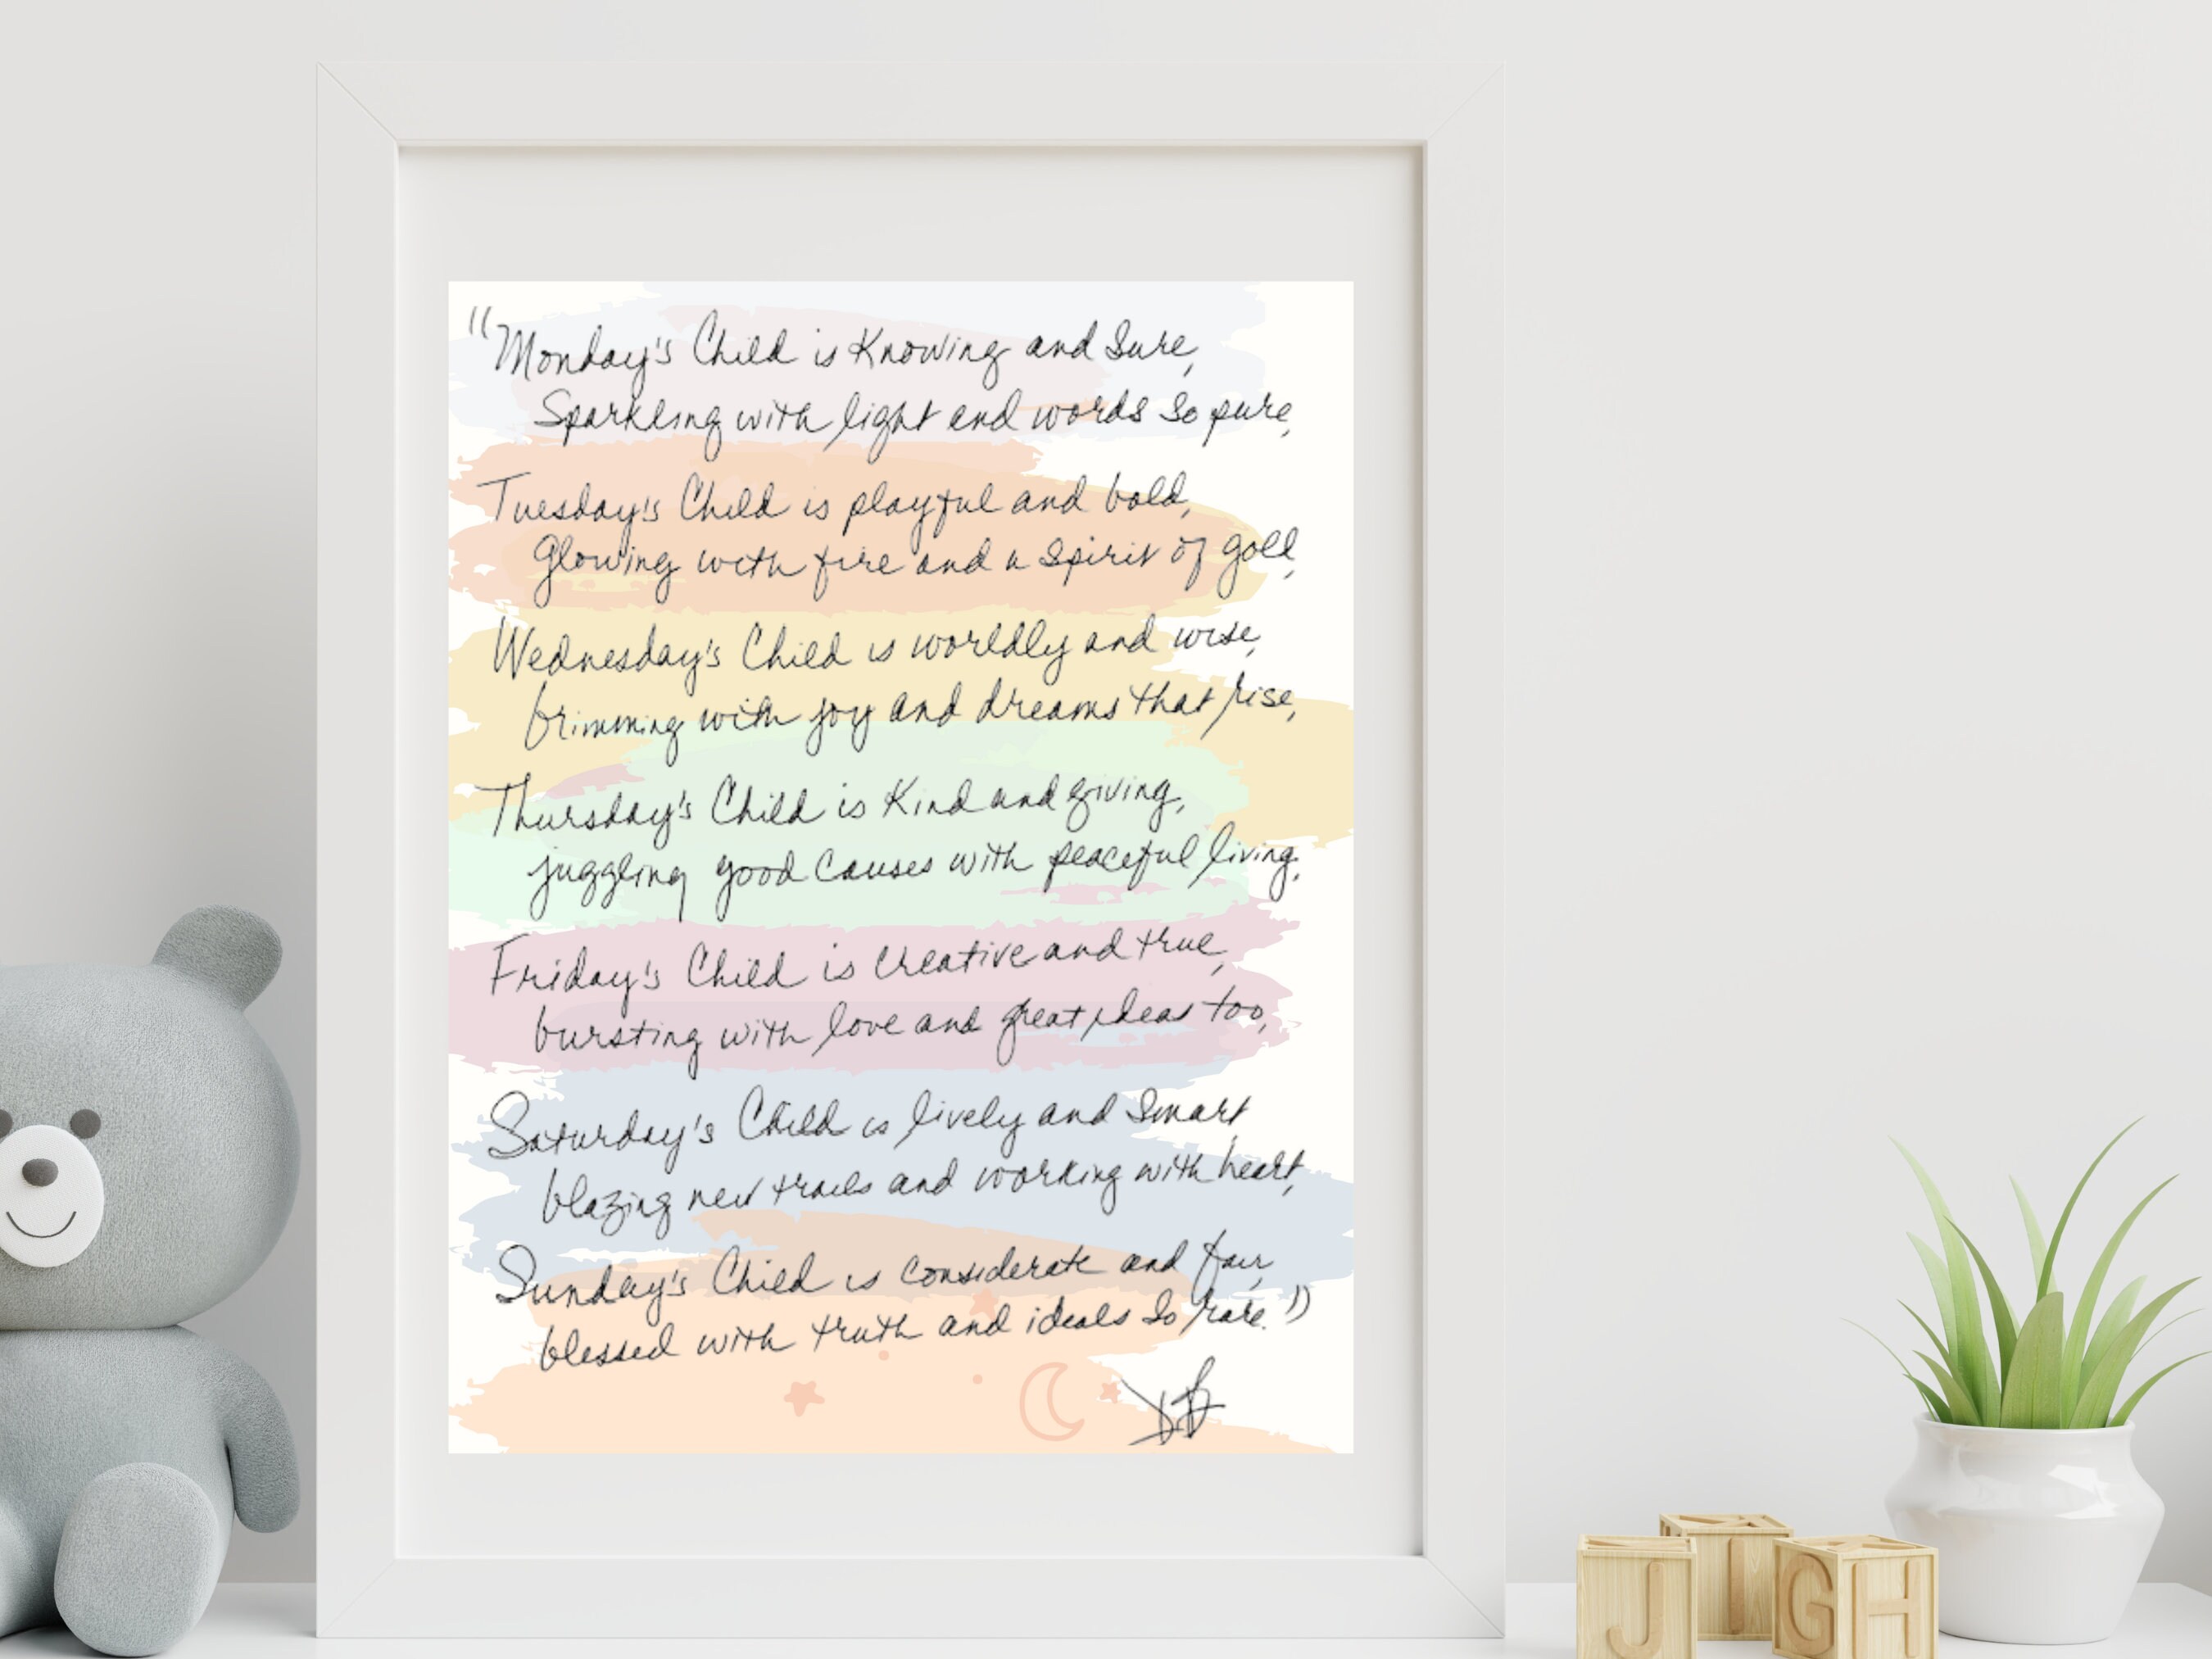 "Monday's Child is Knowing and Sure,
Sparkling with light and words so pure,
Tuesday's Child is playful and bold,
Glowing with fire and a spirit of gold,
Wednesday's Child is worldly and wise,
brimming with joy and dreams that rise,
Thursday's Child is Kind and giving,
juggling good causes with peaceful living,
Friday's Child is creative and true,
bursting with love and great ideas too,
Saturday's Child is lively and smart,
blazing new trails and working with heart,
Sunday's Child is considerate and fair,
blessed with truth and ideals so rare."
J
I
G
H